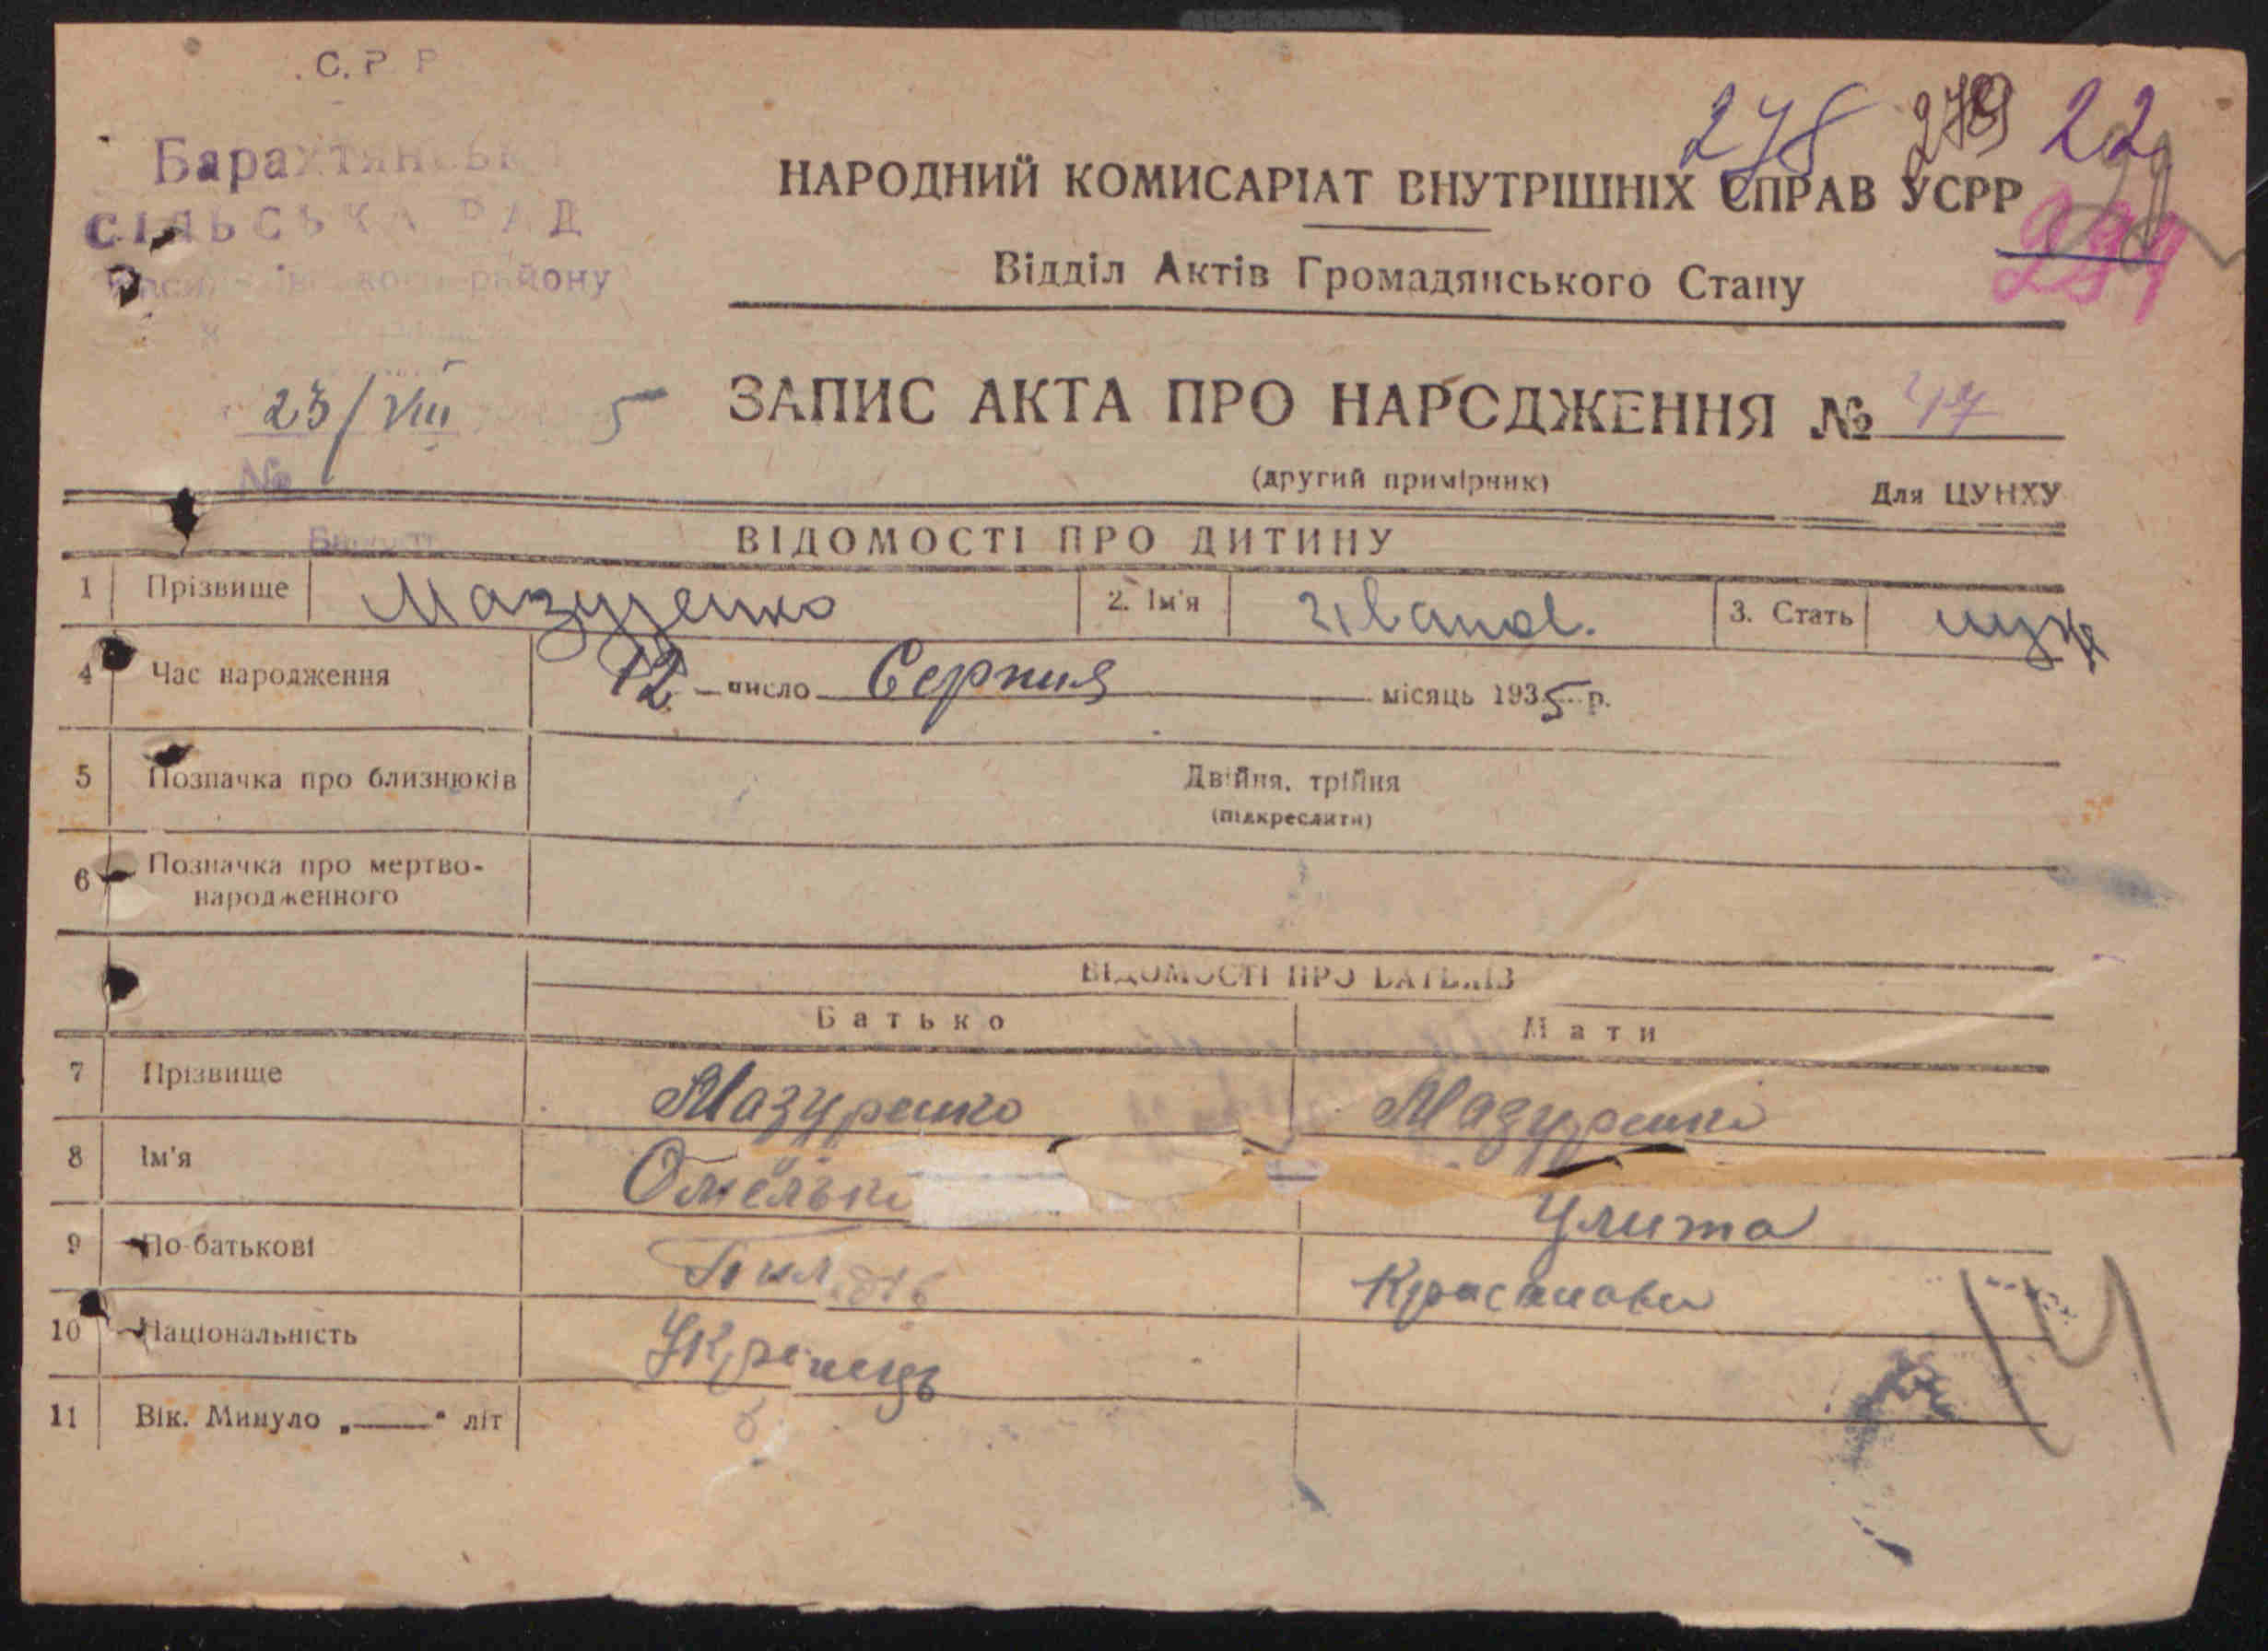 С.Р.Р
278 279 22
Барахтянськ
СІЛЬСЬКА РАД
району
299
НАРОДНИЙ КОМИСАРІАТ ВНУТРІШНІХ СПРАВ УСРР
Відділ Актів Громадянського Стану
23/VIII 5
№
ЗАПИС АКТА ПРО НАРОДЖЕННЯ №
(другий примірник)
Для ЦУНХУ
ВІДОМОСТІ ПРО ДИТИНУ
1 Прізвище Мазуренко 2. Ім'я Іван 3. Стать муж
4 Час народження 12 число Серпня місяць 1935 р.
5 Позначка про близнюків Двійня, трійня
(підкреслити)
6 Позначка про мертво-
народженного
ВІДОМОСТІ ПРО БАТЬКІВ
Батько Мати
7 Прізвище Мазуренко Мазуренко
8 Ім'я Омелько Улита
9 По-батькові
10 Національність Украінець
11 Вік. Минуло „—“ літ
14